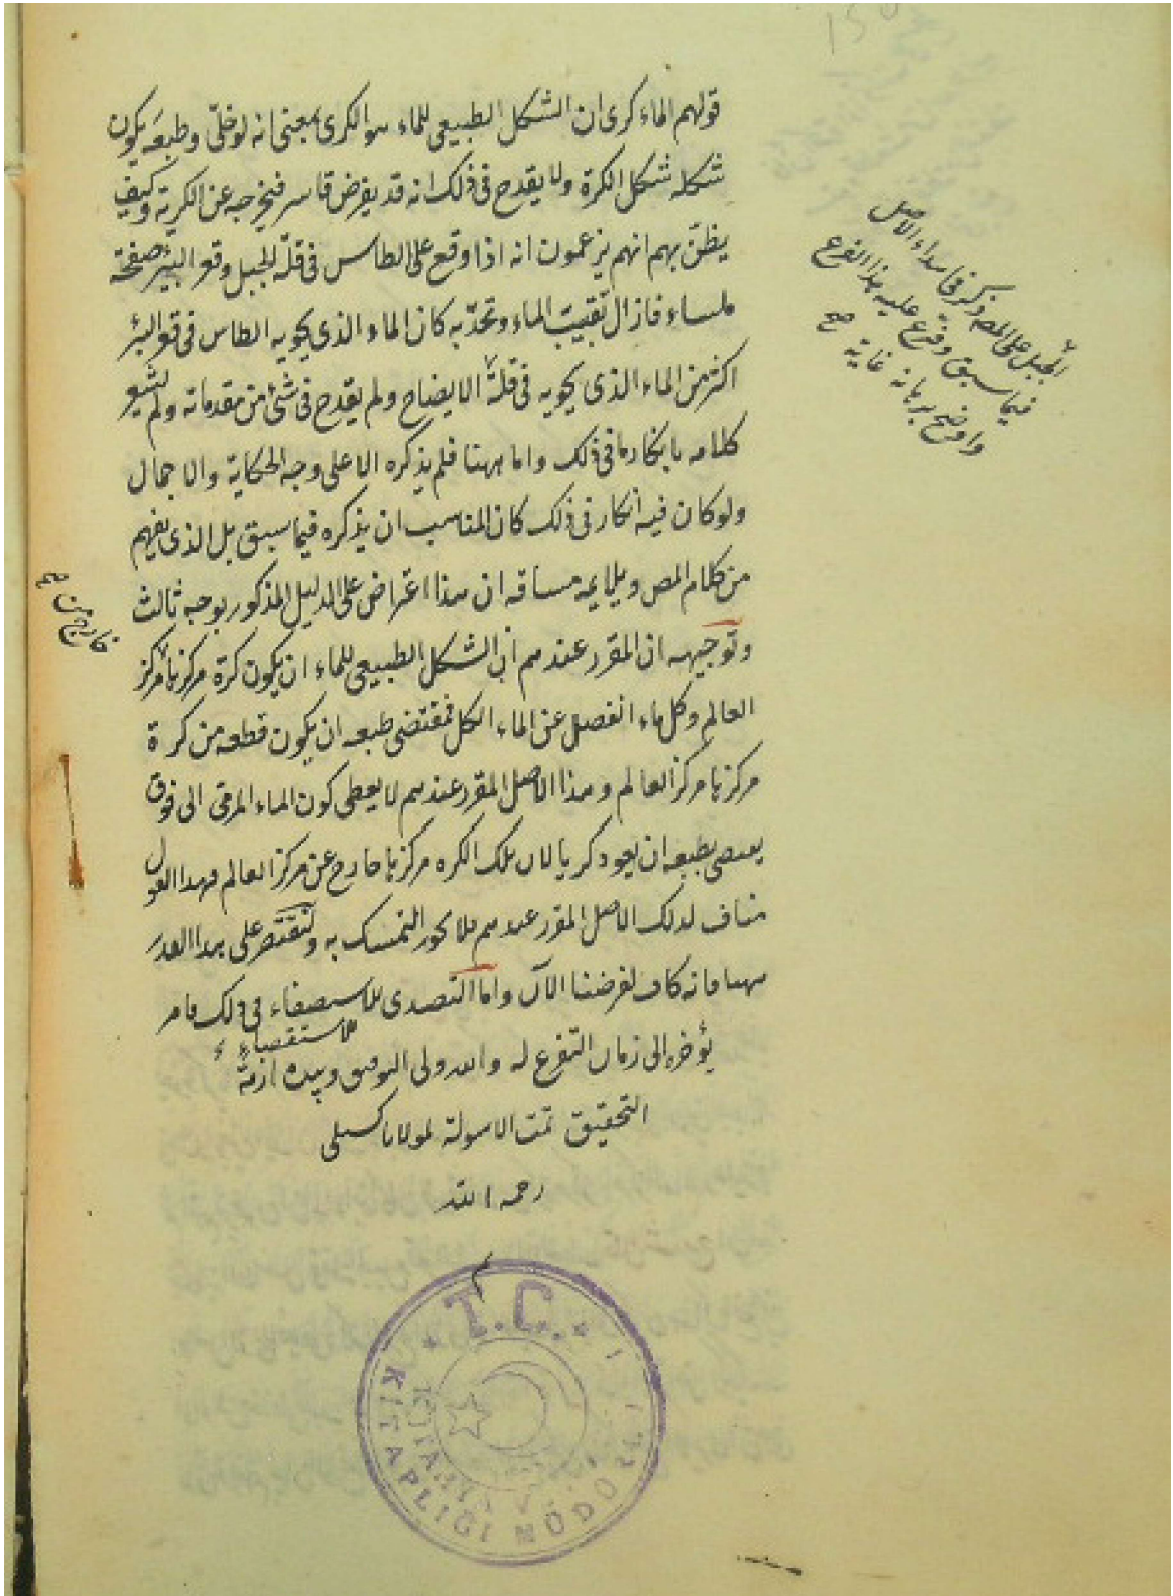 قولهم الماء كرى ان الشكل الطبيعى للماء هو الكرى بمعنى انه لو خلى وطبعه يكون
شكله شكل الكرة ولا يقدح فى ذلك انه قد يفرض قاسر فيخرجه عن الكرية وكيف
يظن بهم انهم يزعمون انه اذا وقع على الطاس فى قلة الجبل وقعر البئر صفحة
ملساء فازال تقبيب الماء وتحدبه كان الماء الذى يحويه الطاس فى قعر البئر
اكثر من الماء الذى يحويه فى قلة الايضاح ولم يقدح فى شئ من مقدماته ولم يشعر
كلامه بانكار ما فى ذلك واما ههنا فلم يذكره الا على وجه الحكاية والاجمال
ولو كان فيه انكار فى ذلك كان المناسب ان يذكره فيما سبق بل الذى يفهم
من كلام المص ويلايمه مساقه ان هذا اعتراض على الدليل المذكور بوجه ثالث
وتوجيهه ان المقرر عندهم ان الشكل الطبيعى للماء ان يكون كرة مركزها مركز
العالم وكل ماء انفصل عن الماء الكل فمقتضى طبعه ان يكون قطعه من كرة
مركزها مركز العالم وهذا الاصل المقرر عندهم لا يعطى كون الماء المرمى الى فوق
يقتضى بطبعه ان يعود كريا لان تلك الكره مركزها خارج عن مركز العالم فهذا القول
مناف لذلك الاصل المقرر عندهم فلا يجوز التمسك به ولنقتصر على هذا القدر
ههنا فانه كاف لغرضنا الان واما التصدى للاستصفاء فى ذلك فامر
للاستقصاء
يؤخره الى زمان التفرغ له والله ولى التوفيق وبيده ازمة
التحقيق تمت الاسولة لمولانا كستلى
رحمه الله
الجبل على المص وذكر فى ابتداء الاصل
فيما سبق وفرع عليه هذا الفرع
واوضح برهانه غاية صح
خارج عن صح
T.C.
KİTAPLIĞI MÜDÜRLÜĞÜ